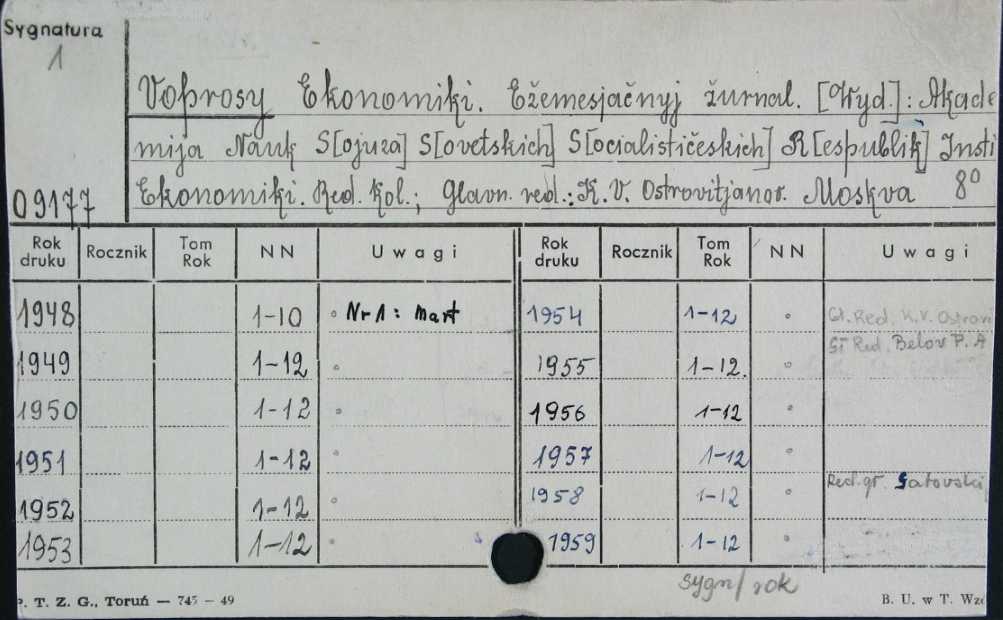 Sygnatura
1
Voprosy Ekonomiki. Ežemesjačnyj žurnal. [Wyd.]: Akade
mija Nauk S[ojuza] S[ovetskich] S[ocialističeskich] R[espublik] Insti
09177 Ekonomiki. Red. Kol.; Glavn. red.: K. V. Ostrovitjanov. Moskva 8°
Rok druku Rocznik Tom Rok NN Uwagi Rok druku Rocznik Tom Rok NN Uwagi
1948 1-10 Nr 1: Mart 1954 1-12 Gł. Red. K.V. Ostrovi
Gł Red. Belov P. A
1949 1-12 1955 1-12.
1950 1-12 1956 1-12
1951 1-12 1957 1-12
Red. gł. Gatovskij
1952 1-12 1958 1-12
1953 1-12 1959 1-12
sygn/rok
P. T. Z. G., Toruń — 745 — 49 B. U. w T. Wzó